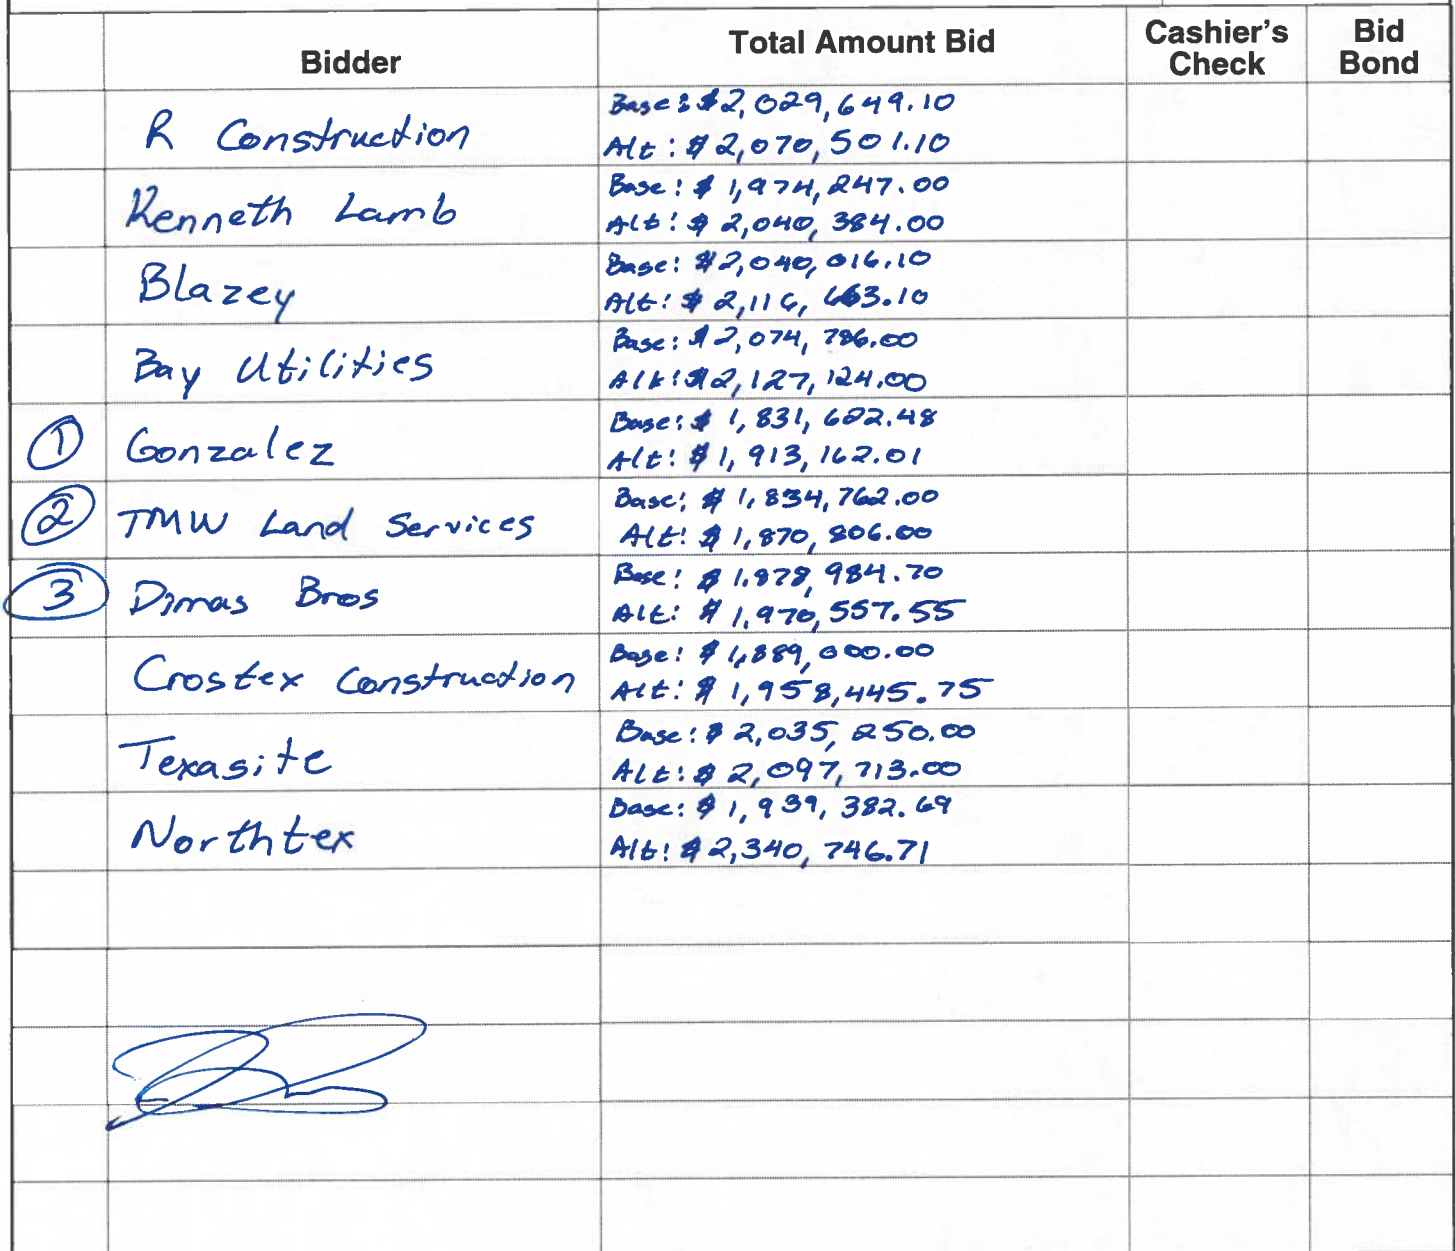 Bidder Total Amount Bid Cashier's Check Bid Bond
R Construction
Base: $2,029,649.10
Alt: $2,070,501.10
Kenneth Lamb
Base: $1,974,247.00
Alt: $2,040,384.00
Blazey
Base: $2,040,016.10
Alt: $2,116,663.10
Bay Utilities
Base: $2,074,786.00
Alt: $2,127,124.00
① Gonzalez
Base: $1,831,622.48
Alt: $1,913,162.01
② TMW Land Services
Base: $1,834,762.00
Alt: $1,870,806.00
③ Dimas Bros
Base: $1,878,984.70
Alt: $1,970,557.55
Crostex Construction
Base: $1,889,000.00
Alt: $1,958,445.75
Texasite
Base: $2,035,250.00
Alt: $2,097,713.00
Northtex
Base: $1,939,382.69
Alt: $2,340,746.71